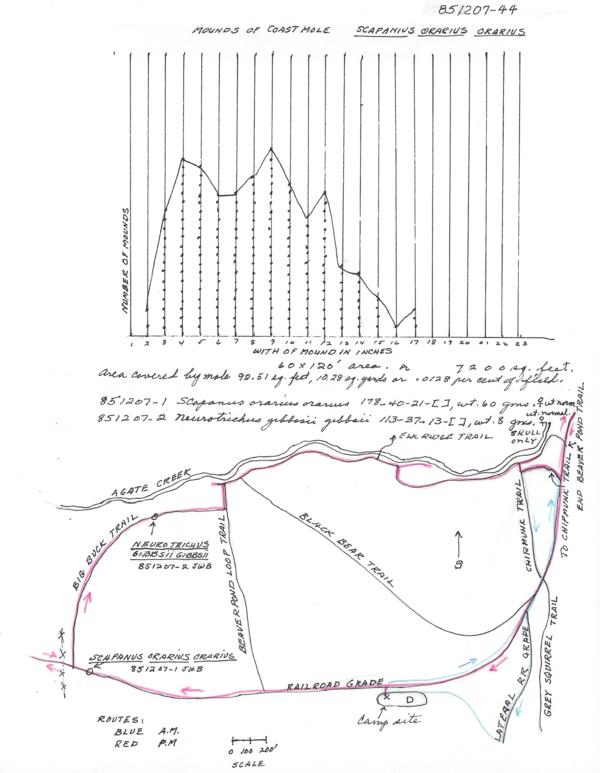 851207-44
MOUNDS OF COAST MOLE SCAPANIUS ORARIUS ORARIUS
NUMBER OF MOUNDS
1 2 3 4 5 6 7 8 9 10 11 12 13 14 15 16 17 18 19 20 21 22 23
WITH OF MOUND IN INCHES
60 X 120' area. or 7200 sq. feet.
Area covered by mole 92.51 sq. feet, 10.28 sq. yards or .0128 per cent of field.
851207-1 Scapanus orarius orarius 178-40-21-[ ], wt. 60 gms. ♀ ut. norm.
851207-2 Neurotrichus gibbsii gibbsii 113-37-13-[ ], wt. 8 gms. ut. normal.
SKULL ONLY
ELK RIDGE TRAIL
AGATE CREEK
TO CHIPMUNK TRAIL &
END BEAVER POND TRAIL
BIG BUCK TRAIL
NEUROTRICHUS
GIBBSII GIBBSII
851207-2 JWB
BEAVER POND LOOP TRAIL
BLACK BEAR TRAIL
CHIPMUNK TRAIL
GREY SQUIRREL TRAIL
SCAPANUS ORARIUS ORARIUS
851207-1 JWB
RAILROAD GRADE
LATERAL RR GRADE
X
D
Camp site
ROUTES:
BLUE A.M.
RED P.M
0 100 200'
SCALE